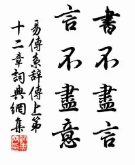 書不盡言
言不盡意
易傳系辭傳上第
十二章詞典網集